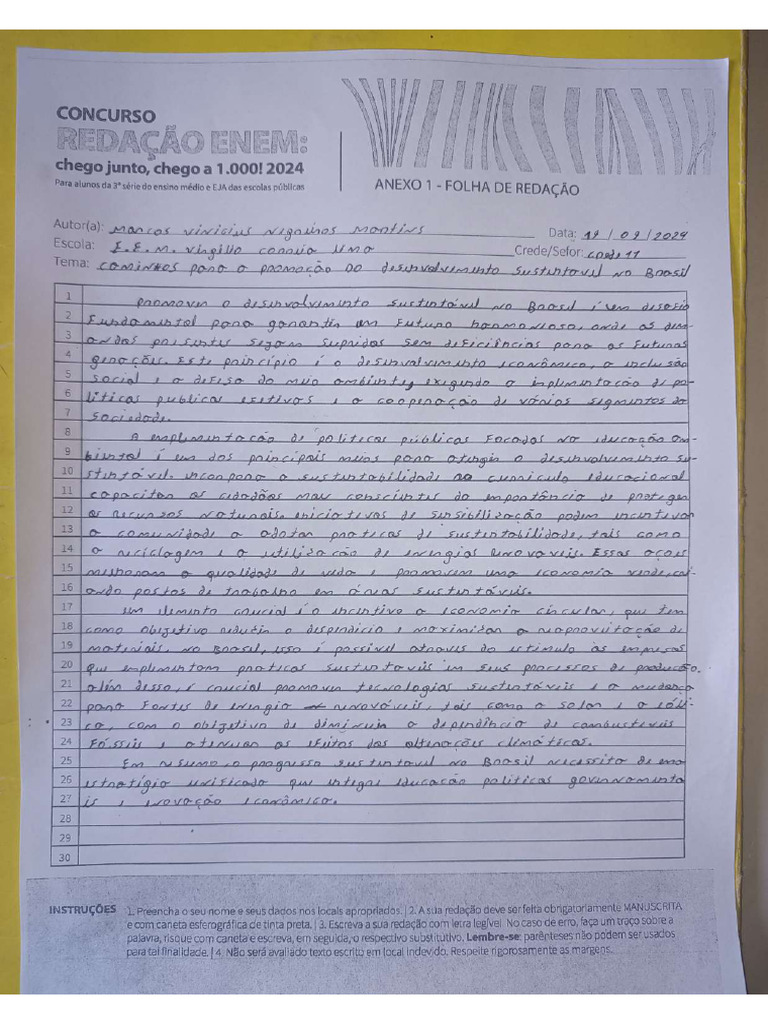 CONCURSO
REDAÇÃO ENEM:
chego junto, chego a 1.000! 2024
Para alunos da 3ª série do ensino médio e EJA das escolas públicas
ANEXO 1 - FOLHA DE REDAÇÃO
Autor(a): Marcos Vinicius Martins
Data: 19 / 09 / 2024
Escola: E.E.M. Virgilio Correia Lima
Crede/Sefor: crede 11
Tema: Caminhos para a promoção do desenvolvimento sustentavel no Brasil
1 Promover o desenvolvimento sustentável no Brasil é um desafio
2 fundamental para garantir um futuro harmonioso, onde as dem-
3 andas presentes sejam supridas sem deficiências para as futuras
4 gerações. Este princípio é o desenvolvimento econômico, a inclusão
5 social e a defesa do meio ambiente, exigindo a inplementação de po-
6 líticas publicas efetivas e a cooperação de vários segmentos da
7 sociedade.
8 A emplimentação de políticas públicas focadas na educação am-
9 biental é um dos principais meios para atingir o desenvolvimento su-
10 stentável. incorpora a sustentabilidade no curriculo educacional
11 capacitar os cidadões mais conscientes da importância de proteger
12 os recurzos naturais. iniciativas de sinsibilização podem incentivar
13 a comunidade a adotar praticas de sustentabilidade, tais como
14 a reciclagem e a utilização de energias renovaveis. Essas ações
15 melhoram a qualidade de vida e promovem uma economia verde, cri-
16 ando postos de trabalho em áreas sustentáveis.
17 Um elemento crucial é o incentivo a economia circular, que tem
18 como objetivo reduzir o desperdicio e maximizar a reaproveitação de
19 materiais. no Brasil, isso é possivel através do estimulo às empresas
20 que emplimentam praticas sustentaveis em seus processos de produção.
21 além desso, é crucial promover tecnologias sustentáveis e a mudança
22 para fontes de energia renováveis, tais como a solar e a eóli-
23 ca, com o objetivo de diminuir a dependência de combusteveis
24 fósseis e atenuar os efeitos das alterações climáticas.
25 Em resumo, o progresso sustentavel no Brasil necessita de uma
26 estratégia unificada que integre educação políticas governamenta
27 is e inovação econômica.
28
29
30
INSTRUÇÕES 1. Preencha o seu nome e seus dados nos locais apropriados. | 2. A sua redação deve ser feita obrigatoriamente MANUSCRITA
e com caneta esferográfica de tinta preta. | 3. Escreva a sua redação com letra legível. No caso de erro, faça um traço sobre a
palavra, risque com caneta e escreva, em seguida, o respectivo substitutivo. Lembre-se: parênteses não podem ser usados
para tal finalidade. | 4. Não será avaliado texto escrito em local indevido. Respeite rigorosamente as margens.